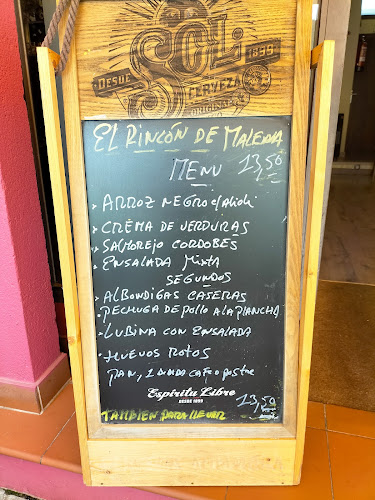 DESDE 1899
SOL
CERVEZA
ORIGINAL
EL RINCÓN DE MALENA
MENU 13,50
ARROZ NEGRO c/alioli
CREMA DE VERDURAS
SALMOREJO CORDOBES
ENSALADA MIXTA
SEGUNDOS
ALBONDIGAS CASERAS
PECHUGA DE POLLO A LA PLANCHA
LUBINA CON ENSALADA
HUEVOS ROTOS
PAN, 1 café o postre
Espíritu Libre 13,50
DESDE 1899
TAMBIEN PARA LLEVAR